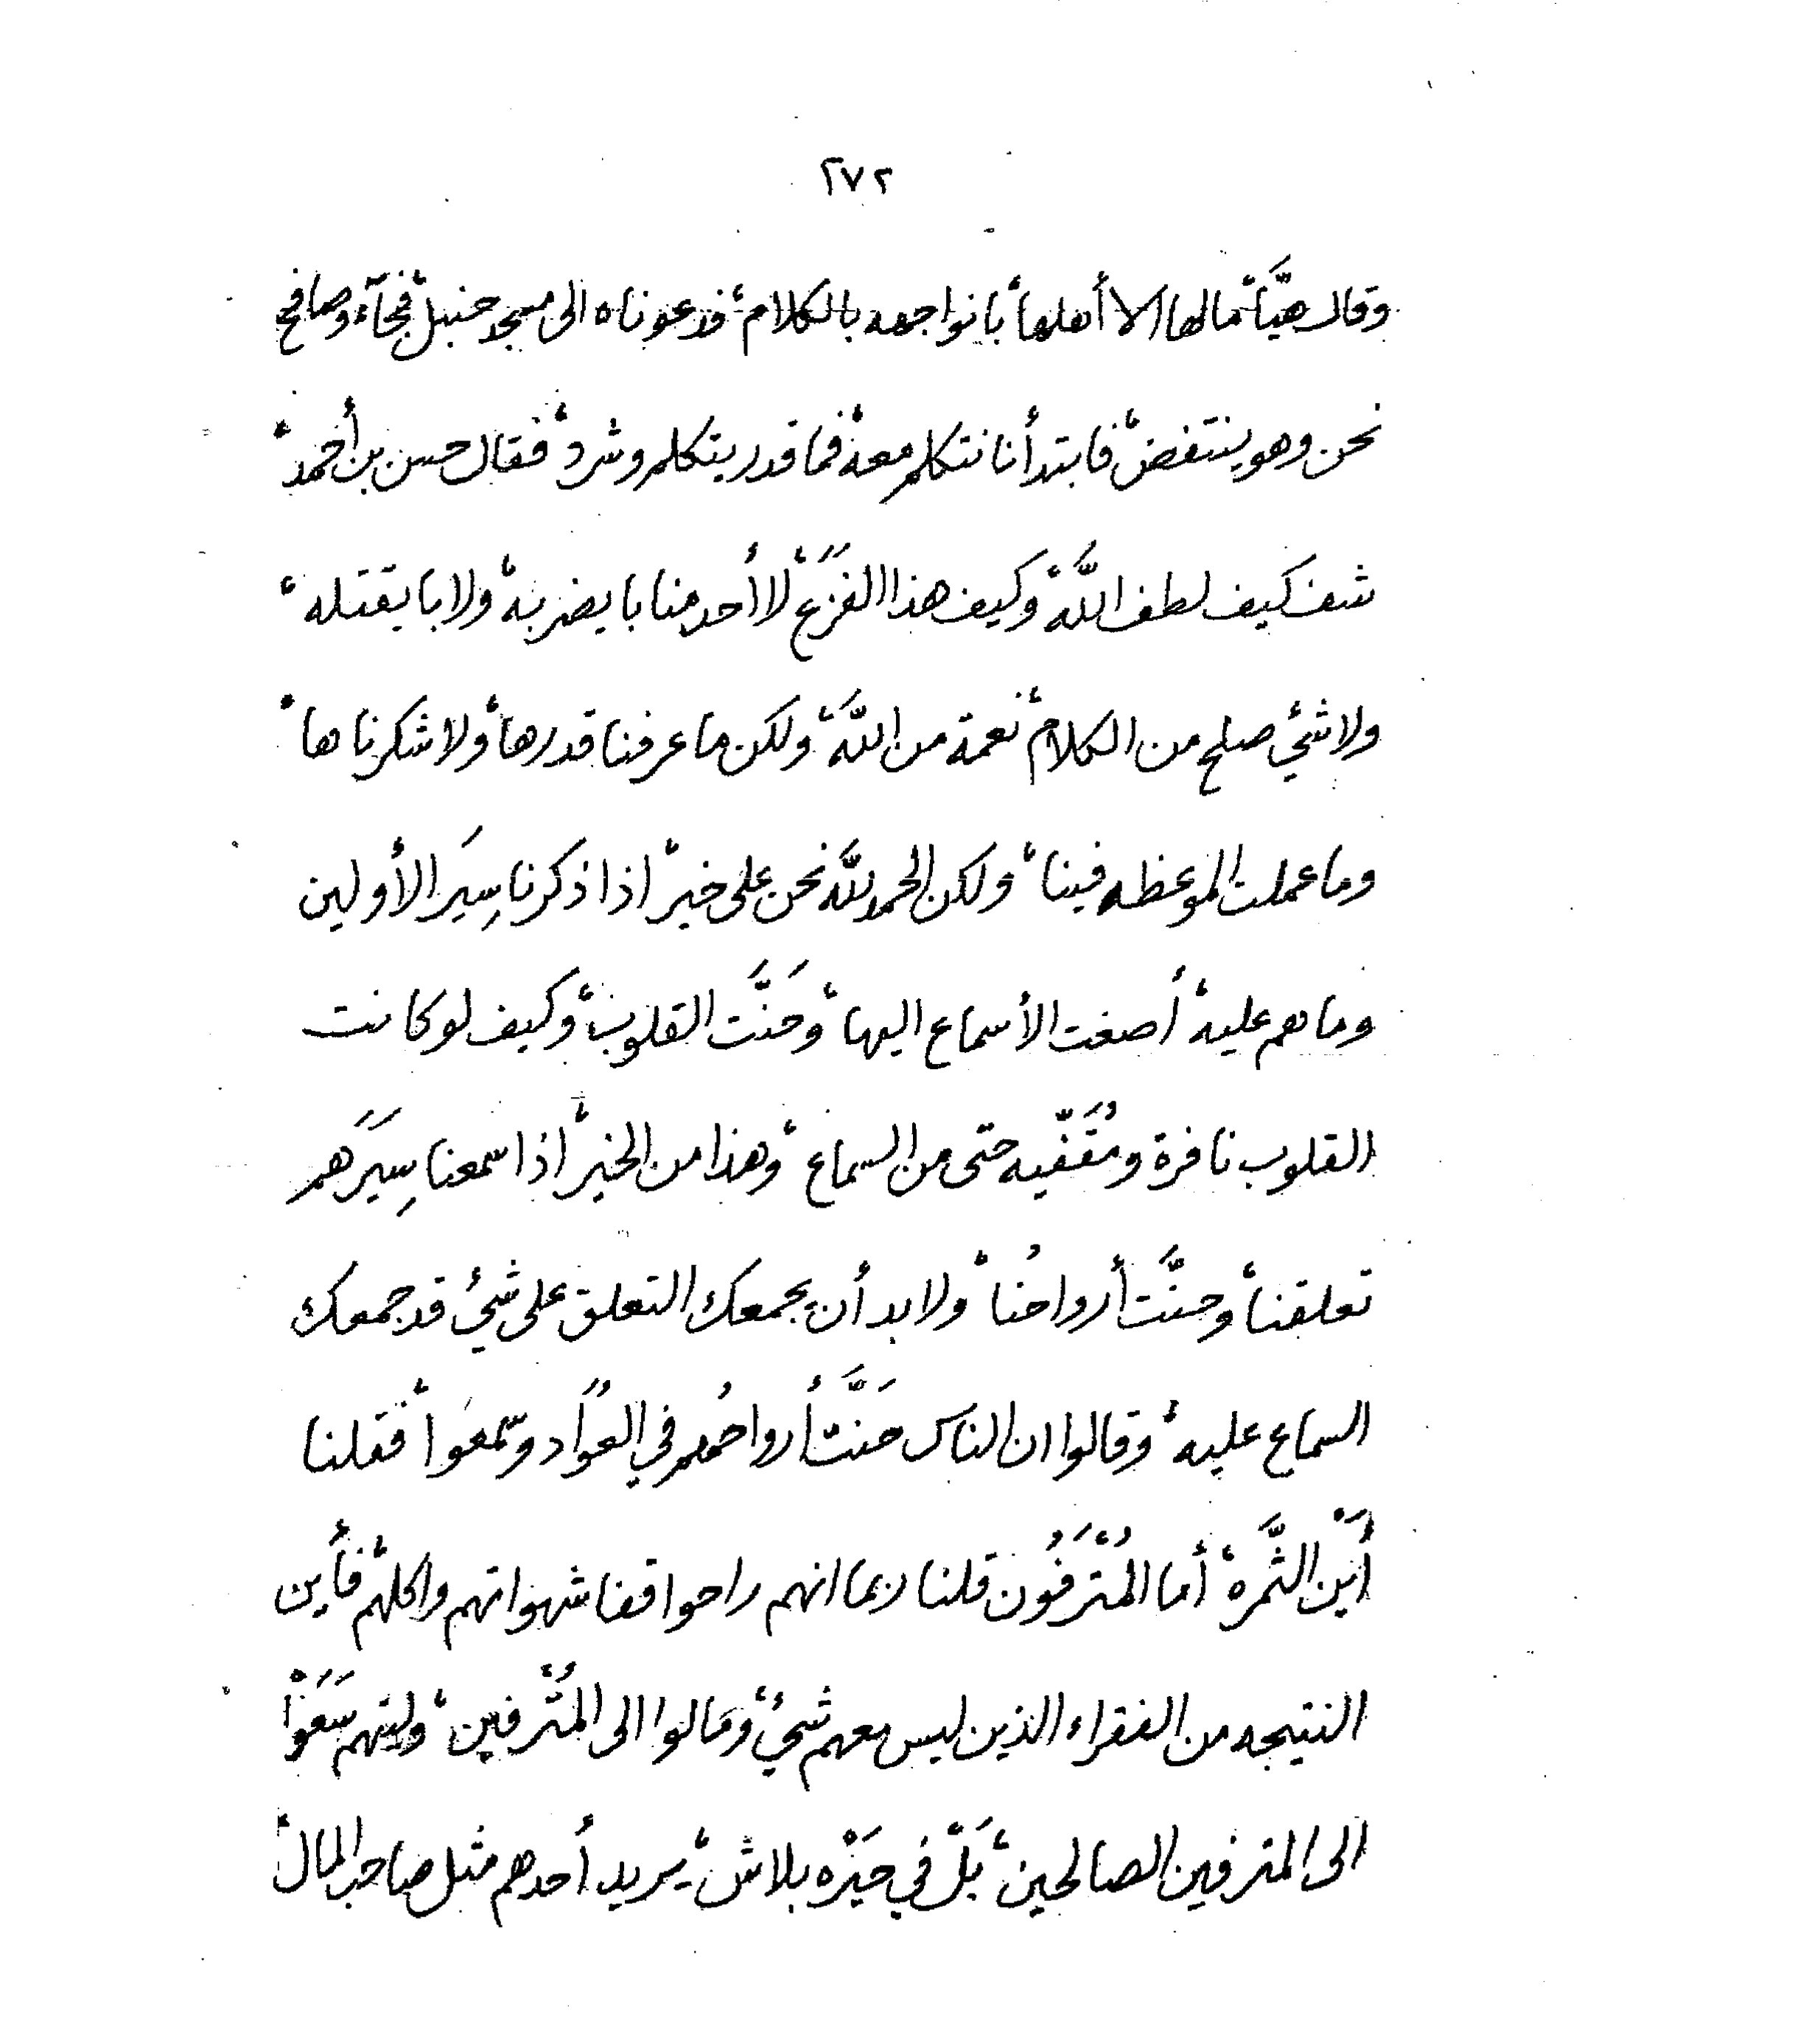 ٢٧٢
وقال هيَّا، مالها إلا أهلها، بانواجهه بالكلام، فدعوناه الى مسجد حنبل، فجآء وصافح
نحن وهو ينتفض، فابتدأنا نتكلم معه، فما قدر يتكلم وشرد، فقال حسن بن أحمد،
شف كيف لطف اللَّه، وكيف هذا الفَزَع، لا أحد منا با يضربه، ولا با يقتله،
ولا شئ صلح من الكلام، نعمة من اللَّه، ولكن ما عرفنا قدرها، ولا شكرناها،
وما عملت الموعظه فينا، ولكن الحمد للَّه نحن على خير، اذا ذكرنا سِيَر الأولين
وما هم عليه، أصغت الأسماع اليها، وحَنَّت القلوب، وكيف لو كانت
القلوب نافرة ومُقَفّيه حتى من السماع، وهذا من الخير، اذا سمعنا سِيَرَهم
تعلقنا، وحنَّت أرواحُنا، ولا بد أن يجمعك التعلق على شئ قد جمعك
السماع عليه، وقالوا ان الناس حَنَّت أرواحُهم في العُوَّاد وسمَّعوا، فقلنا
أَيْن الثَّمره، أما المُتْرَفُون قلنا ربما انهم راحوا قفا شهواتهم واكلهم، فأين
النتيجه من الفقراء الذين ليس معهم شئ، ومَالوا الى المُتْرفين، وليتهم سَعَوْا
الى المترفين الصالحين، بَلْ في حَيْره بلاش، يريد أحدهم مثل صاحب المال،